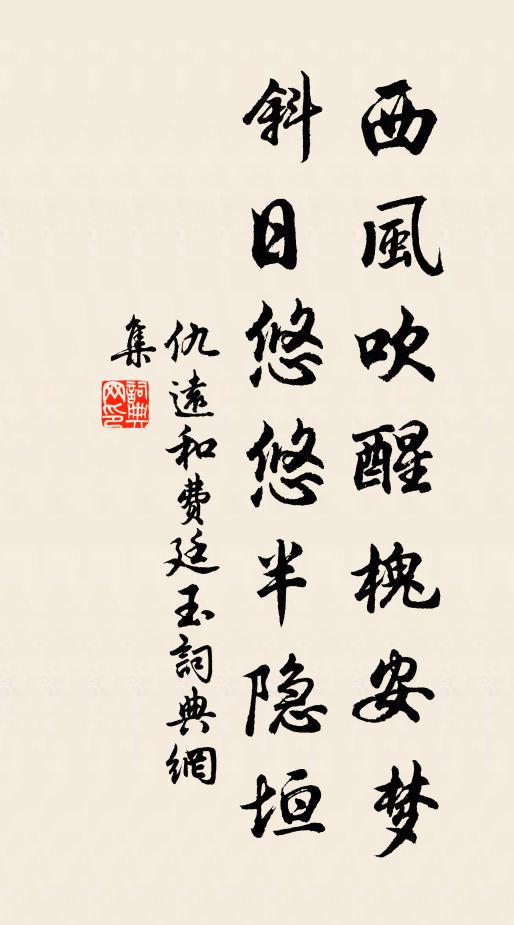 西風吹醒槐安梦
斜日悠悠半隐垣
仇遠和費廷玉詞典網
集
詞典网印